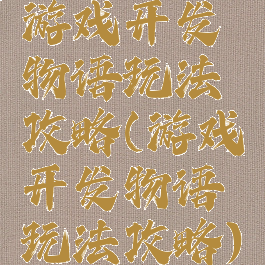 游戏开发
物语玩法
攻略(游戏
开发物语
玩法攻略)